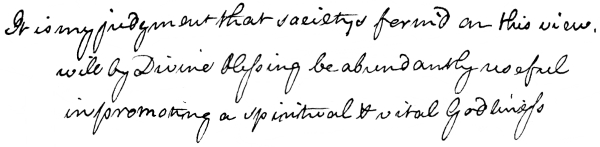 It is my judgment that societys form'd on this view.
will by Divine blessing be abundantly useful
in promoting a spiritual & vital Godliness